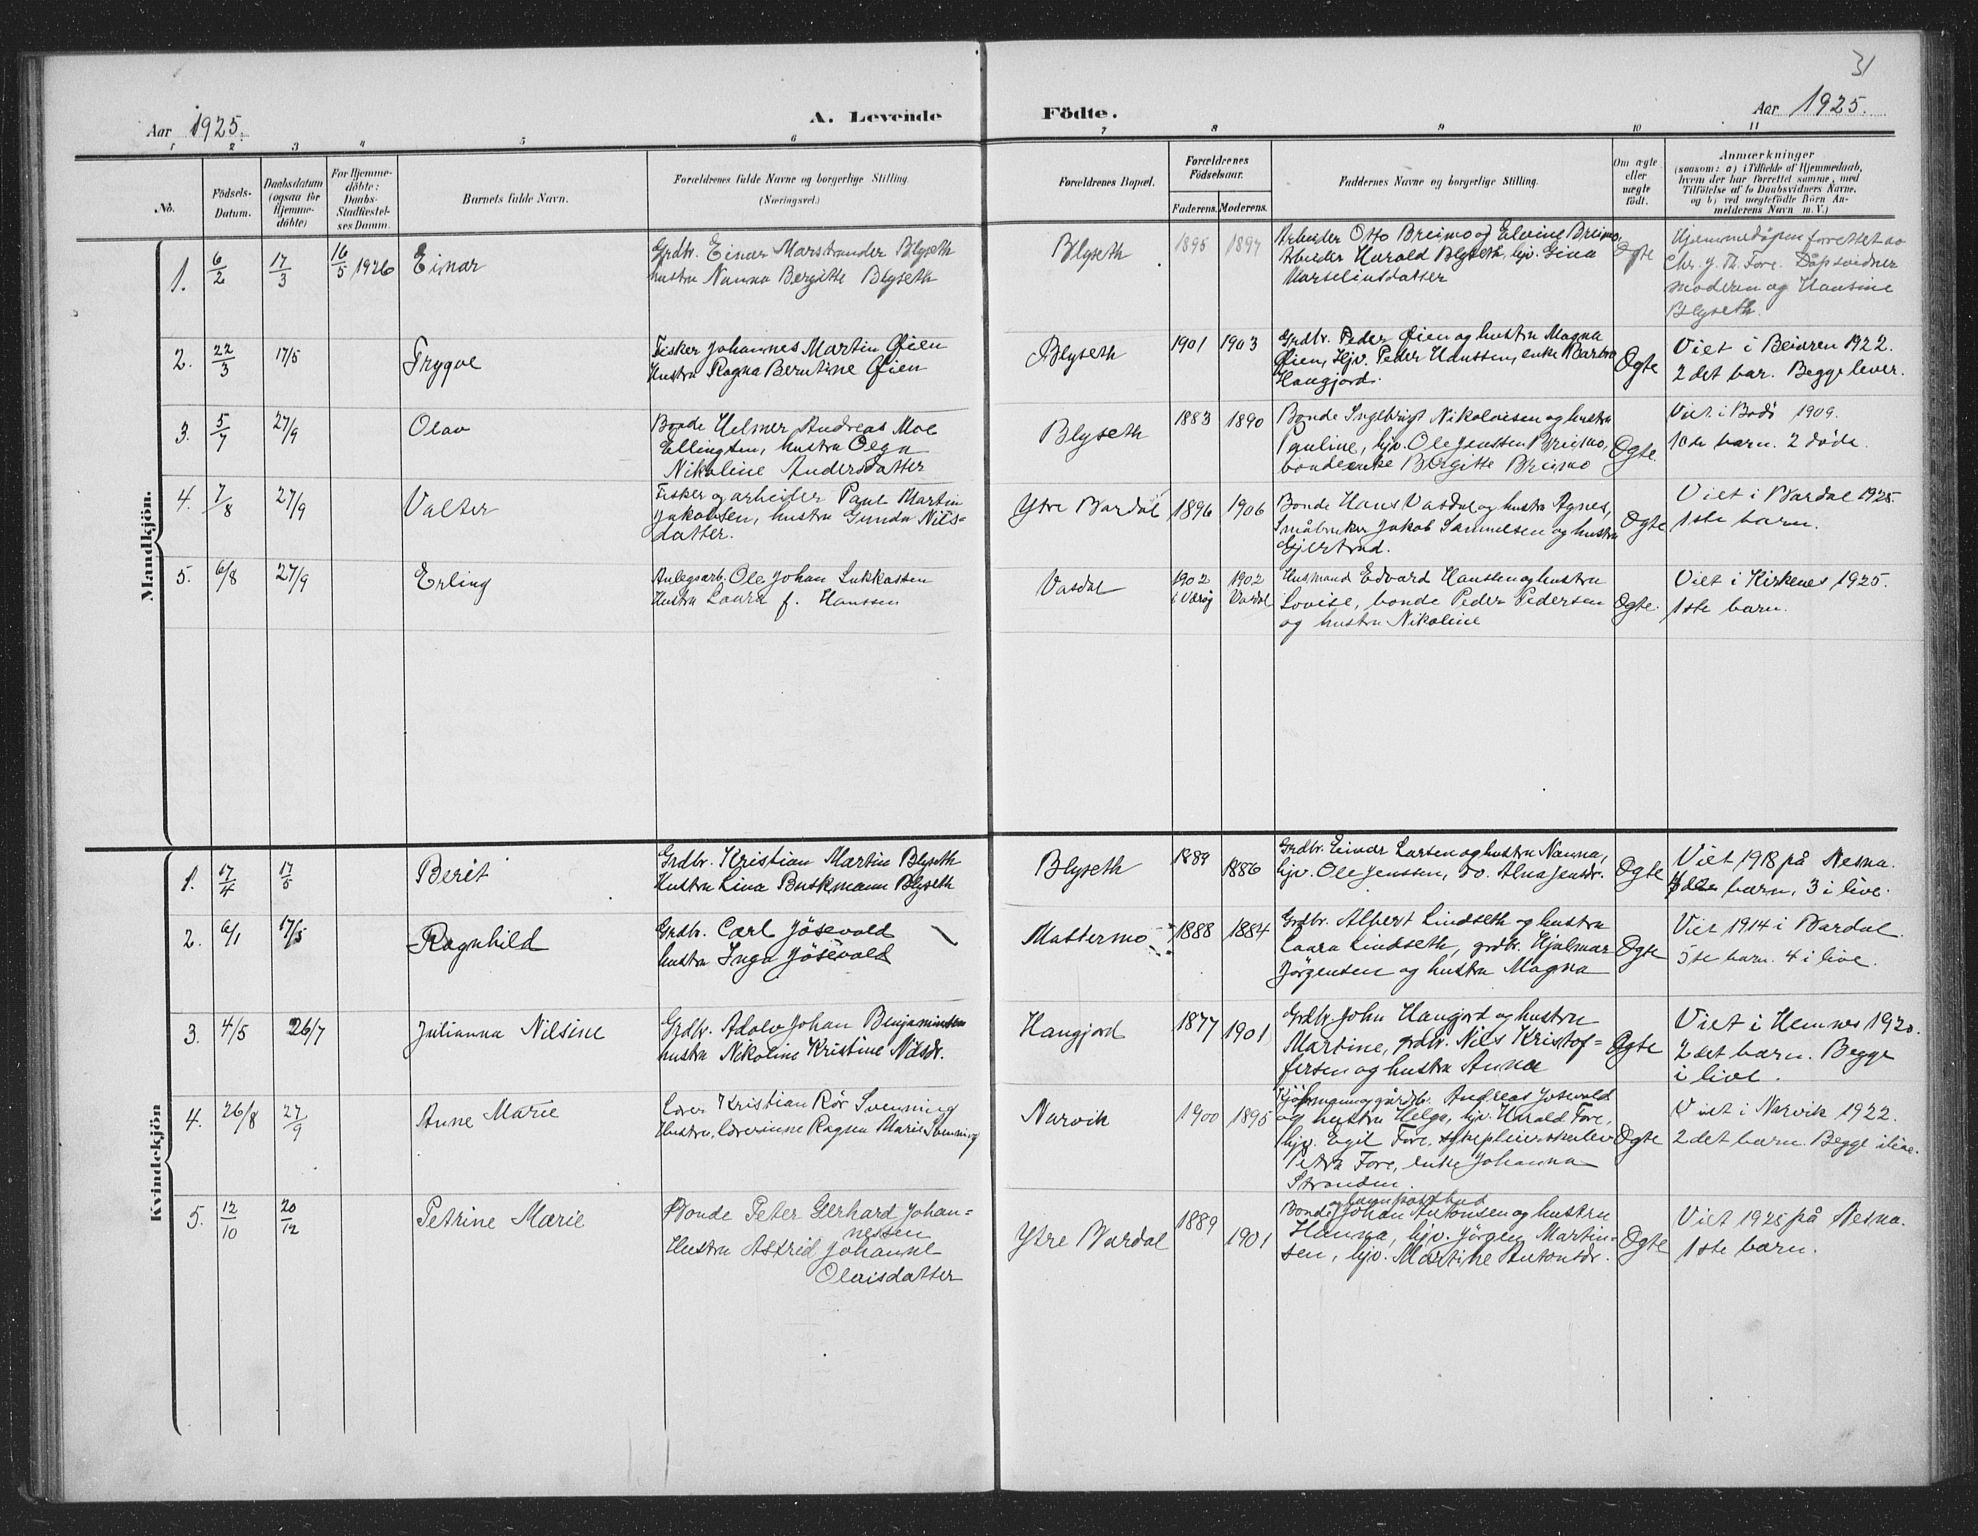 31
Aar 1925.
A. Levende
Födte.
Aar 1925.
1 2 3 4 5 6 7 8 9 10 11
No.
Födsels-
Datum.
Daabsdatum
(ogsaa for
Hjemme-
döbte)
For Hjemme-
döbte:
Daabs-
Stadfæstel-
ses Datum.
Barnets fulde Navn.
Forældrenes fulde Navne og borgerlige Stilling.
(Næringsvei.)
Forældrenes Bopæl.
Forældrenes
Födselsaar.
Faderens. Moderens.
Faddernes Navne og borgerlige Stilling.
Om ægte
eller
uægte
födt.
Anmærkninger
(saasom: a) i Tilfælde af Hjemmedaab,
hvem der har forrettet samme, med
Tilföielse af to Daabsvidners Navne,
og b) ved uægtefödte Börn An-
melderens Navn m. V.)
Mandkjön.
1. 6/2 17/3 16/5 1926 Einar
Grdbr. Einar Marstrander Blyseth
hustru Nanna Bergitte Blyseth
Blyseth 1895 1897
Arbeider Otto Breimo og Elvine Breimo,
Arbeider Harald Blyseth, hjv. Gina
Marseliusdatter
Egte
Hjemmedåpen forrettet av
Chr. J. Th. Fore. Dåpsvidner
moderen og Hansine
Blyseth.
2. 22/3 17/5 Trygve
Fisker Johannes Martin Øien
Hustru Ragna Berntine Øien
Blyseth 1901 1903
Grdbr. Peder Øien og hustru Magna
Øien, Hjv. Peder Hanssen, enke Barbro
Haugjord.
Egte
Viet i Beiaren 1922.
2 det bar. Begge lever.
3. 5/7 27/9 Olav
Bonde Helmer Andreas Moe
Ellingsen, hustru Olga
Nikoline Andersdatter
Blyseth 1883 1890
Bonde Ingebrigt Nikolaisen og hustru
Pauline, hjv. Ole Jenssen Breimo,
bondeenke Bergitte Breimo
Egte
Viet i Bodö 1909.
10de barn. 2 döde.
4. 7/8 27/9 Valter
Fisker og arbeider Paul Martin
Jakobsen, hustru Gunda Nils-
datter.
Ytre Bardal 1896 1906
Bonde Hans Vasdal og hustru Agnes,
Småbruker Jakob Samuelsen og hustru
Gjertrud.
Egte
Viet i Bardal 1925
1ste barn.
5. 6/8 27/9 Erling
Anlegsarb. Ole Johan Lukkassen
Hustru Laura f. Hanssen
Vasdal 1902 i Værøy 1902 Vardal
Husmand Edvard Hansen og hustru
Lovise, bonde Peder Pedersen
og hustru Nikoline
Egte.
Viet i Kirkenes 1925.
1ste barn.
Kvindekjön
1. 17/4 17/5 Berit
Grdbr. Kristian Martin Blyseth
Hustru Lina Buskmann Blyseth
Blyseth 1889 1886
Grdbr. Einar Larsen og hustru Nanna,
hjv. Ole Jenssen, do. Alna Jensdr.
Egte
Viet 1918 på Nesna.
barn, 3 i live.
2. 6/1 17/5 Ragnhild
Grdbr. Carl Jösevold
hustru Inga Jösevold
Mattermo 1888 1884
Grdbr. Albert Lindseth og hustru
Laura Lindseth, grdbr. Hjalmar
Jörgensen og hustru Magna
Egte
Viet 1914 i Bardal.
5te barn. 4 i live.
3. 4/5 26/7 Julianna Nilsine
Grdbr. Adolv Johan Benjaminsen
hustru Nikoline Kristine Nilsdr.
Haugjord 1877 1901
Grdbr. John Haugjord og hustru
Martine, grdbr. Nils Kristof-
fersen og hustru Anna
Egte
Viet i Hemnes 1920.
2 det barn. Begge
i live.
4. 26/8 27/9 Anne Marie
Lærer Kristian Rør Svenning
Hustru, lærerinne Ragna Marie Svenning
Narvik 1900 1895
Kjøbmann og gårdbr. Andreas Josevold
og hustru Helga, hjv. Harald Fore,
hjv. Egil Fore, sykepleierskelev
Petra Fore, enke Johanna
Stranden.
Egte
Viet i Narvik 1922.
2 det barn. Begge i live.
5. 12/10 20/12 Petrine Marie
Bonde Peter Gerhard Johan-
nessen
Hustru Astrid Johanne
Olaisdatter
Ytre Bardal 1889 1901
Bonde Johan Antonsen og hustru
Hanna, hjv. Jörgen Martin-
sen, hjv. Martine Antonsdr.
Egte
Viet 1925 på Nesna.
1ste barn.